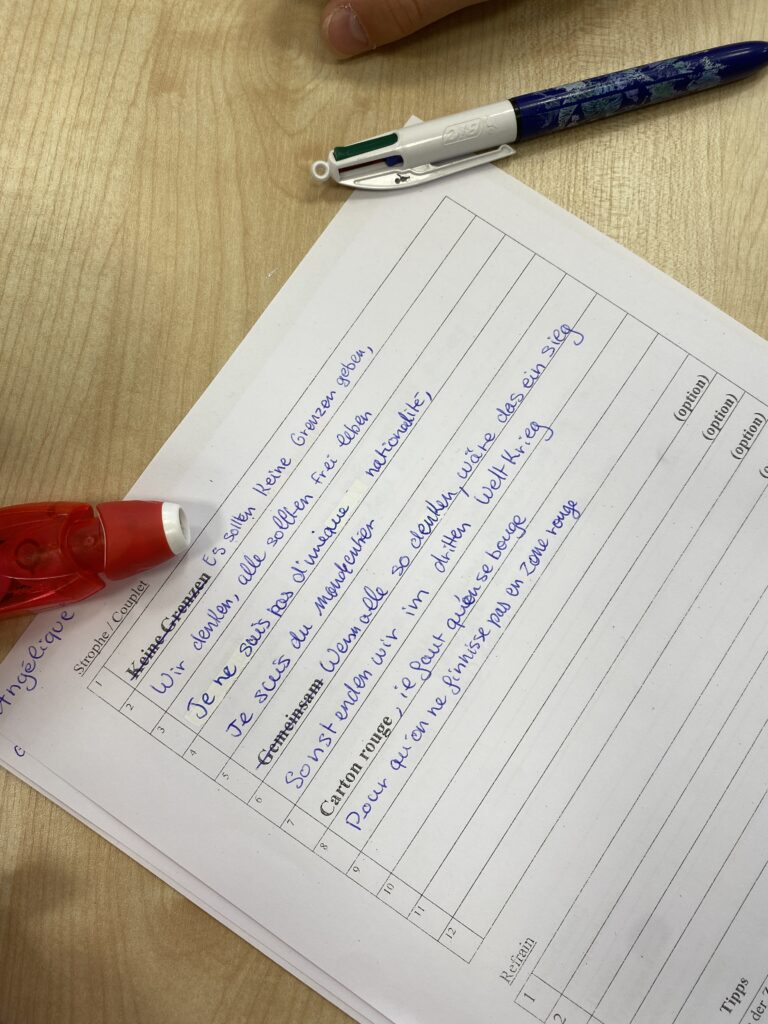 BIC
Angélique
Strophe / Couplet
1 Keine Grenzen Es sollten Keine Grenzen geben,
2 Wir denken, alle sollten frei leben
3 Je ne suis pas nationalité,
4 Je suis du monde entier
5 Gemeinsam Wenn alle so denken, wäre das ein sieg
6 Sonst enden wir im dritten WeltKrieg
7 Carton rouge, il faut qu'on se bouge
8 Pour qu'on ne finnisse pas en zone rouge
9
10 (option)
11 (option)
12 (option)
Refrain
1
2
Tipps
der